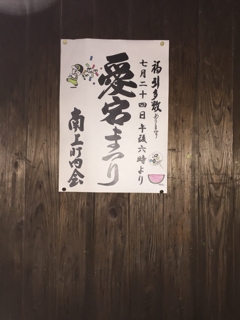 福引多数あります
七月二十四日午後六時より
愛宕まつり
南上町町内会